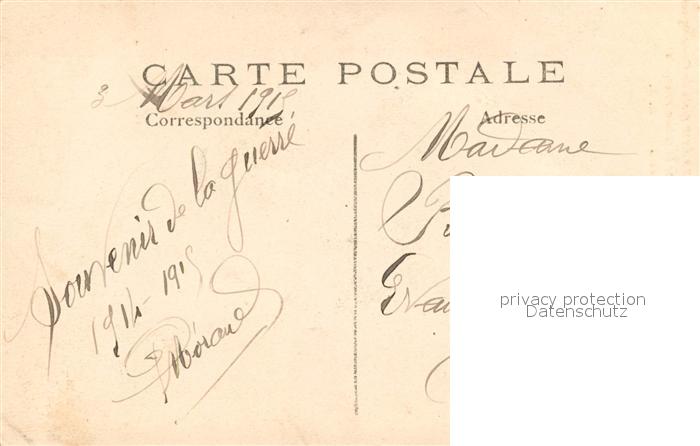 CARTE POSTALE
3 Mars 1915
Correspondance
Adresse
Souvenir de la guerre
1914-1915
Madame
privacy protection
Datenschutz